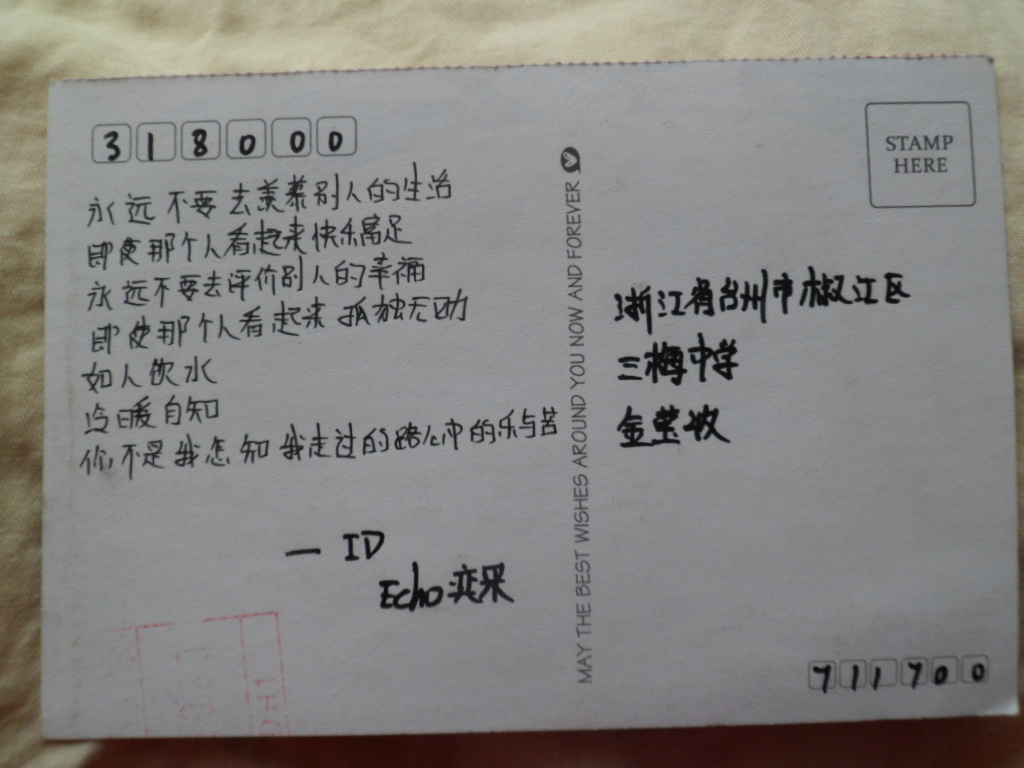 318000
永远不要去羡慕别人的生活
即使那个人看起来快乐富足
永远不要去评价别人的幸福
即使那个人看起来孤独无助
如人饮水
冷暖自知
你不是我怎知我走过的路心中的乐与苦
— ID
Echo
MAY THE BEST WISHES AROUND YOU NOW AND FOREVER
STAMP
HERE
浙江省台州市椒江区
三梅中学
金莹敏
711700